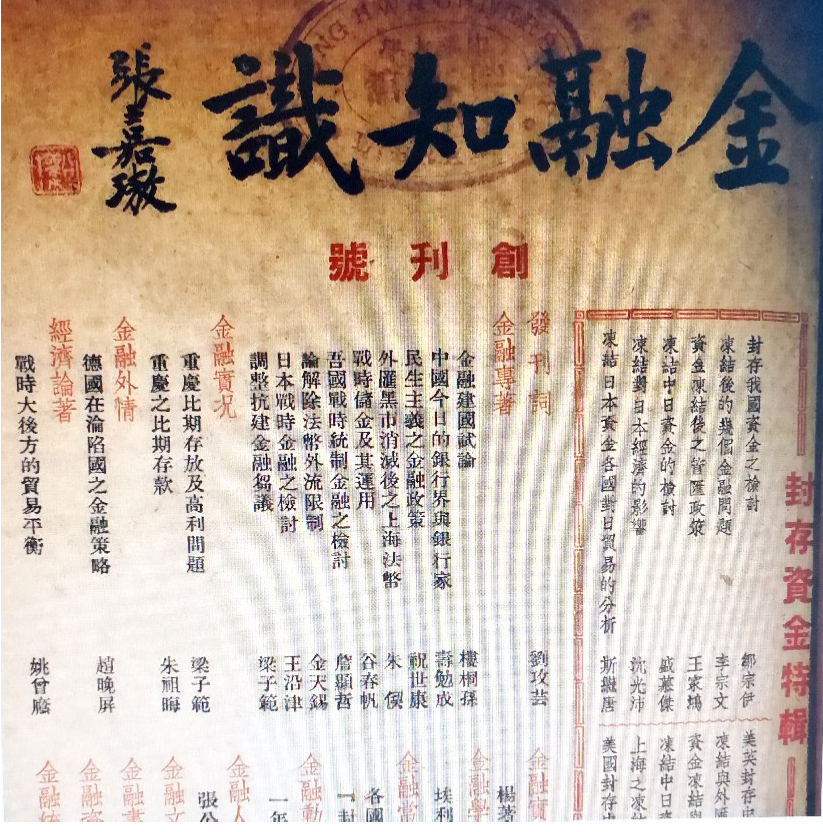 金融知識
張嘉璈
創刊號
封存資金特輯
封存我國資金之檢討 鄒宗伊
凍結後的幾個金融問題 李宗文
資金凍結後之管匯政策 王家鴻
凍結中日資金的檢討 戚慕傑
凍結對日本經濟的影響 沈光沛
凍結日本資金各國對日貿易的分析 斯繼唐
美英封存中
凍結與外匯
資金凍結與
凍結中日資
上海之凍結
美國封存中
發刊詞 劉攻芸
金融專著
金融建國試論 樓桐孫
中國今日的銀行界與銀行家 壽勉成
民生主義之金融政策 祝世康
外匯黑市消滅後之上海法幣 朱偰
戰時儲金及其運用 谷春帆
吾國戰時統制金融之檢討 詹顯哲
論解除法幣外流限制 金天錫
日本戰時金融之檢討 王沿津
調整抗建金融芻議 梁子範
金融實况
重慶比期存放及高利問題 梁子範
重慶之比期存款 朱祖晦
金融外情
德國在淪陷國之金融策略 趙晚屏
經濟論著
戰時大後方的貿易平衡 姚曾廕
金融實
楊著
金融學
埃利
金融常
各國
「封
金融動
一年
金融人
張公
金融文
金融書
金融資
金融統